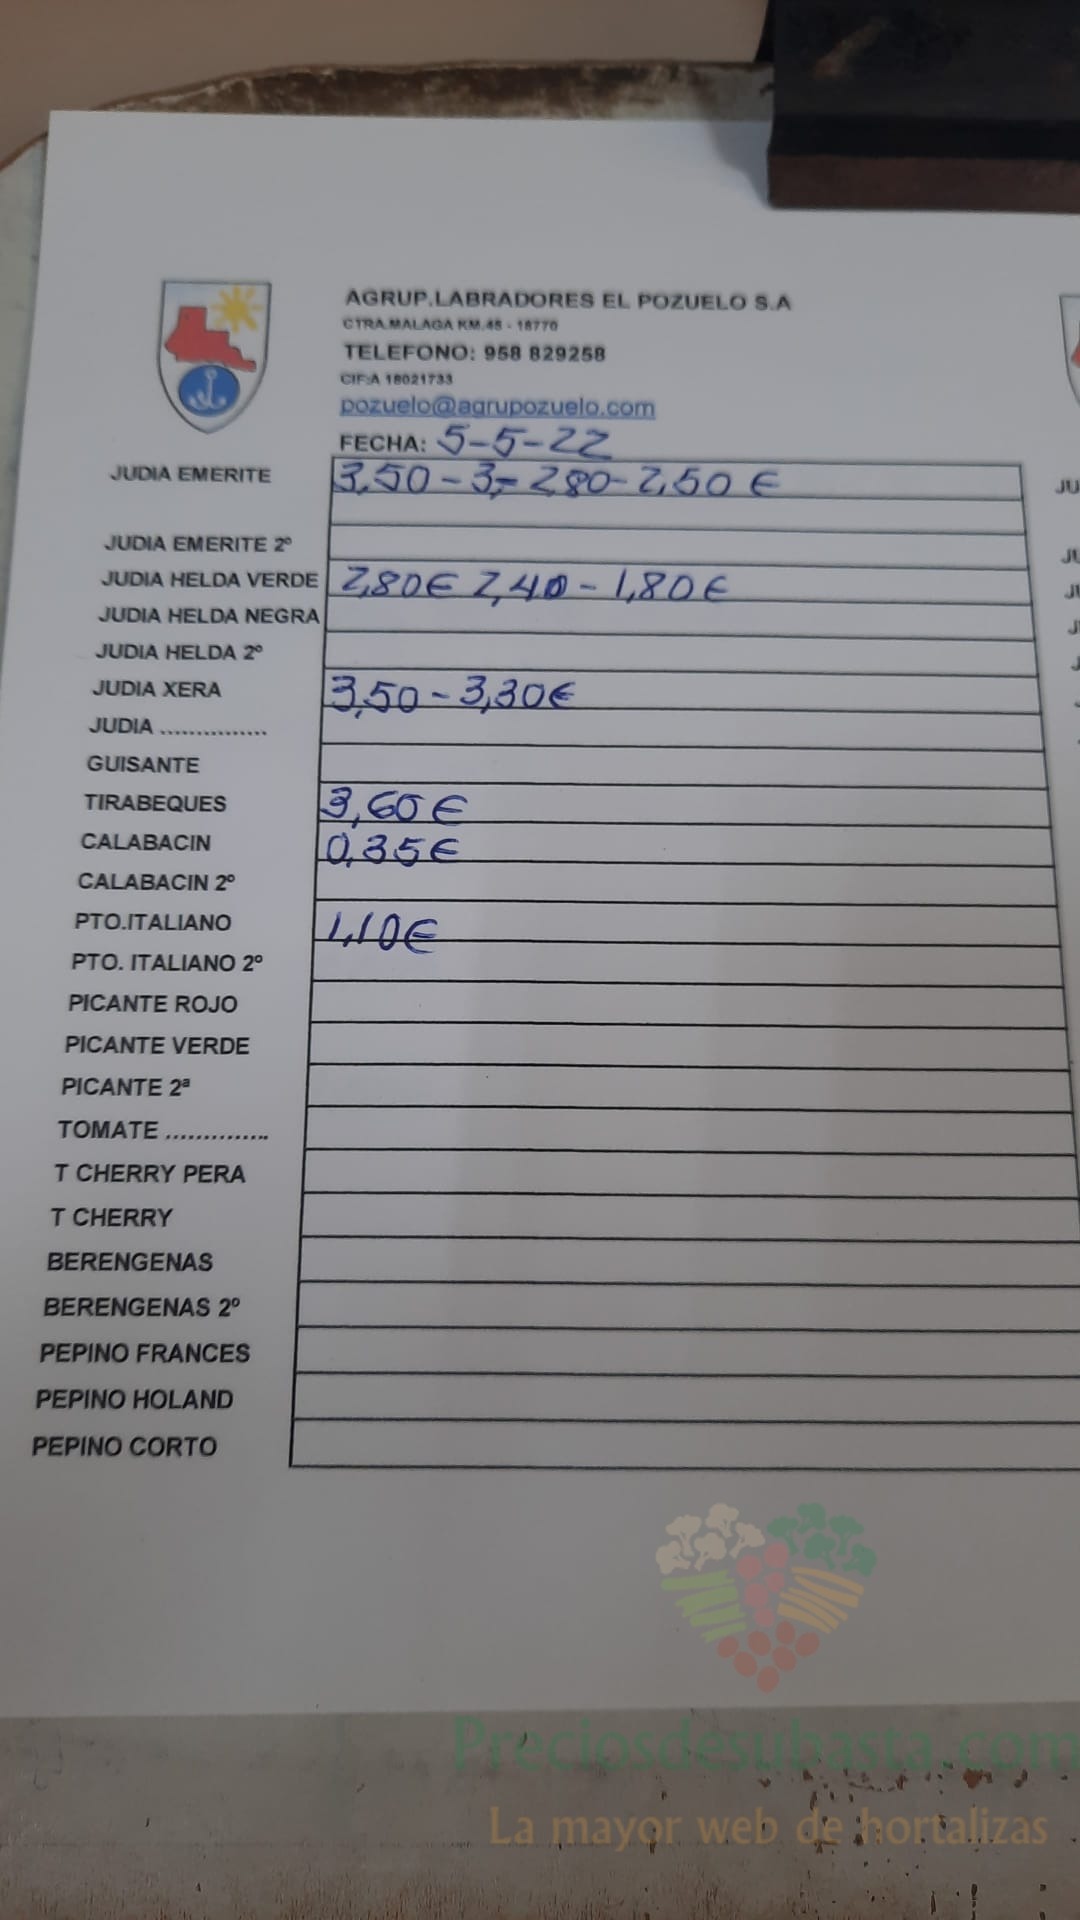 AGRUP.LABRADORES EL POZUELO S.A
CTRA.MALAGA KM.48 - 18770
TELEFONO: 958 829258
CIF:A 18021733
pozuelo@agrupozuelo.com
FECHA: 5-5-22
JUDIA EMERITE 3,50 - 3,- 2,80 - 2,50 €
JUDIA EMERITE 2º
JUDIA HELDA VERDE 2,80€ 2,40 - 1,80€
JUDIA HELDA NEGRA
JUDIA HELDA 2º
JUDIA XERA 3,50 - 3,30€
JUDIA ...............
GUISANTE
TIRABEQUES 3,60€
CALABACIN 0,35€
CALABACIN 2º
PTO.ITALIANO 1,10€
PTO. ITALIANO 2º
PICANTE ROJO
PICANTE VERDE
PICANTE 2ª
TOMATE ..............
T CHERRY PERA
T CHERRY
BERENGENAS
BERENGENAS 2º
PEPINO FRANCES
PEPINO HOLAND
PEPINO CORTO
Preciosdesubasta.com
La mayor web de hortalizas